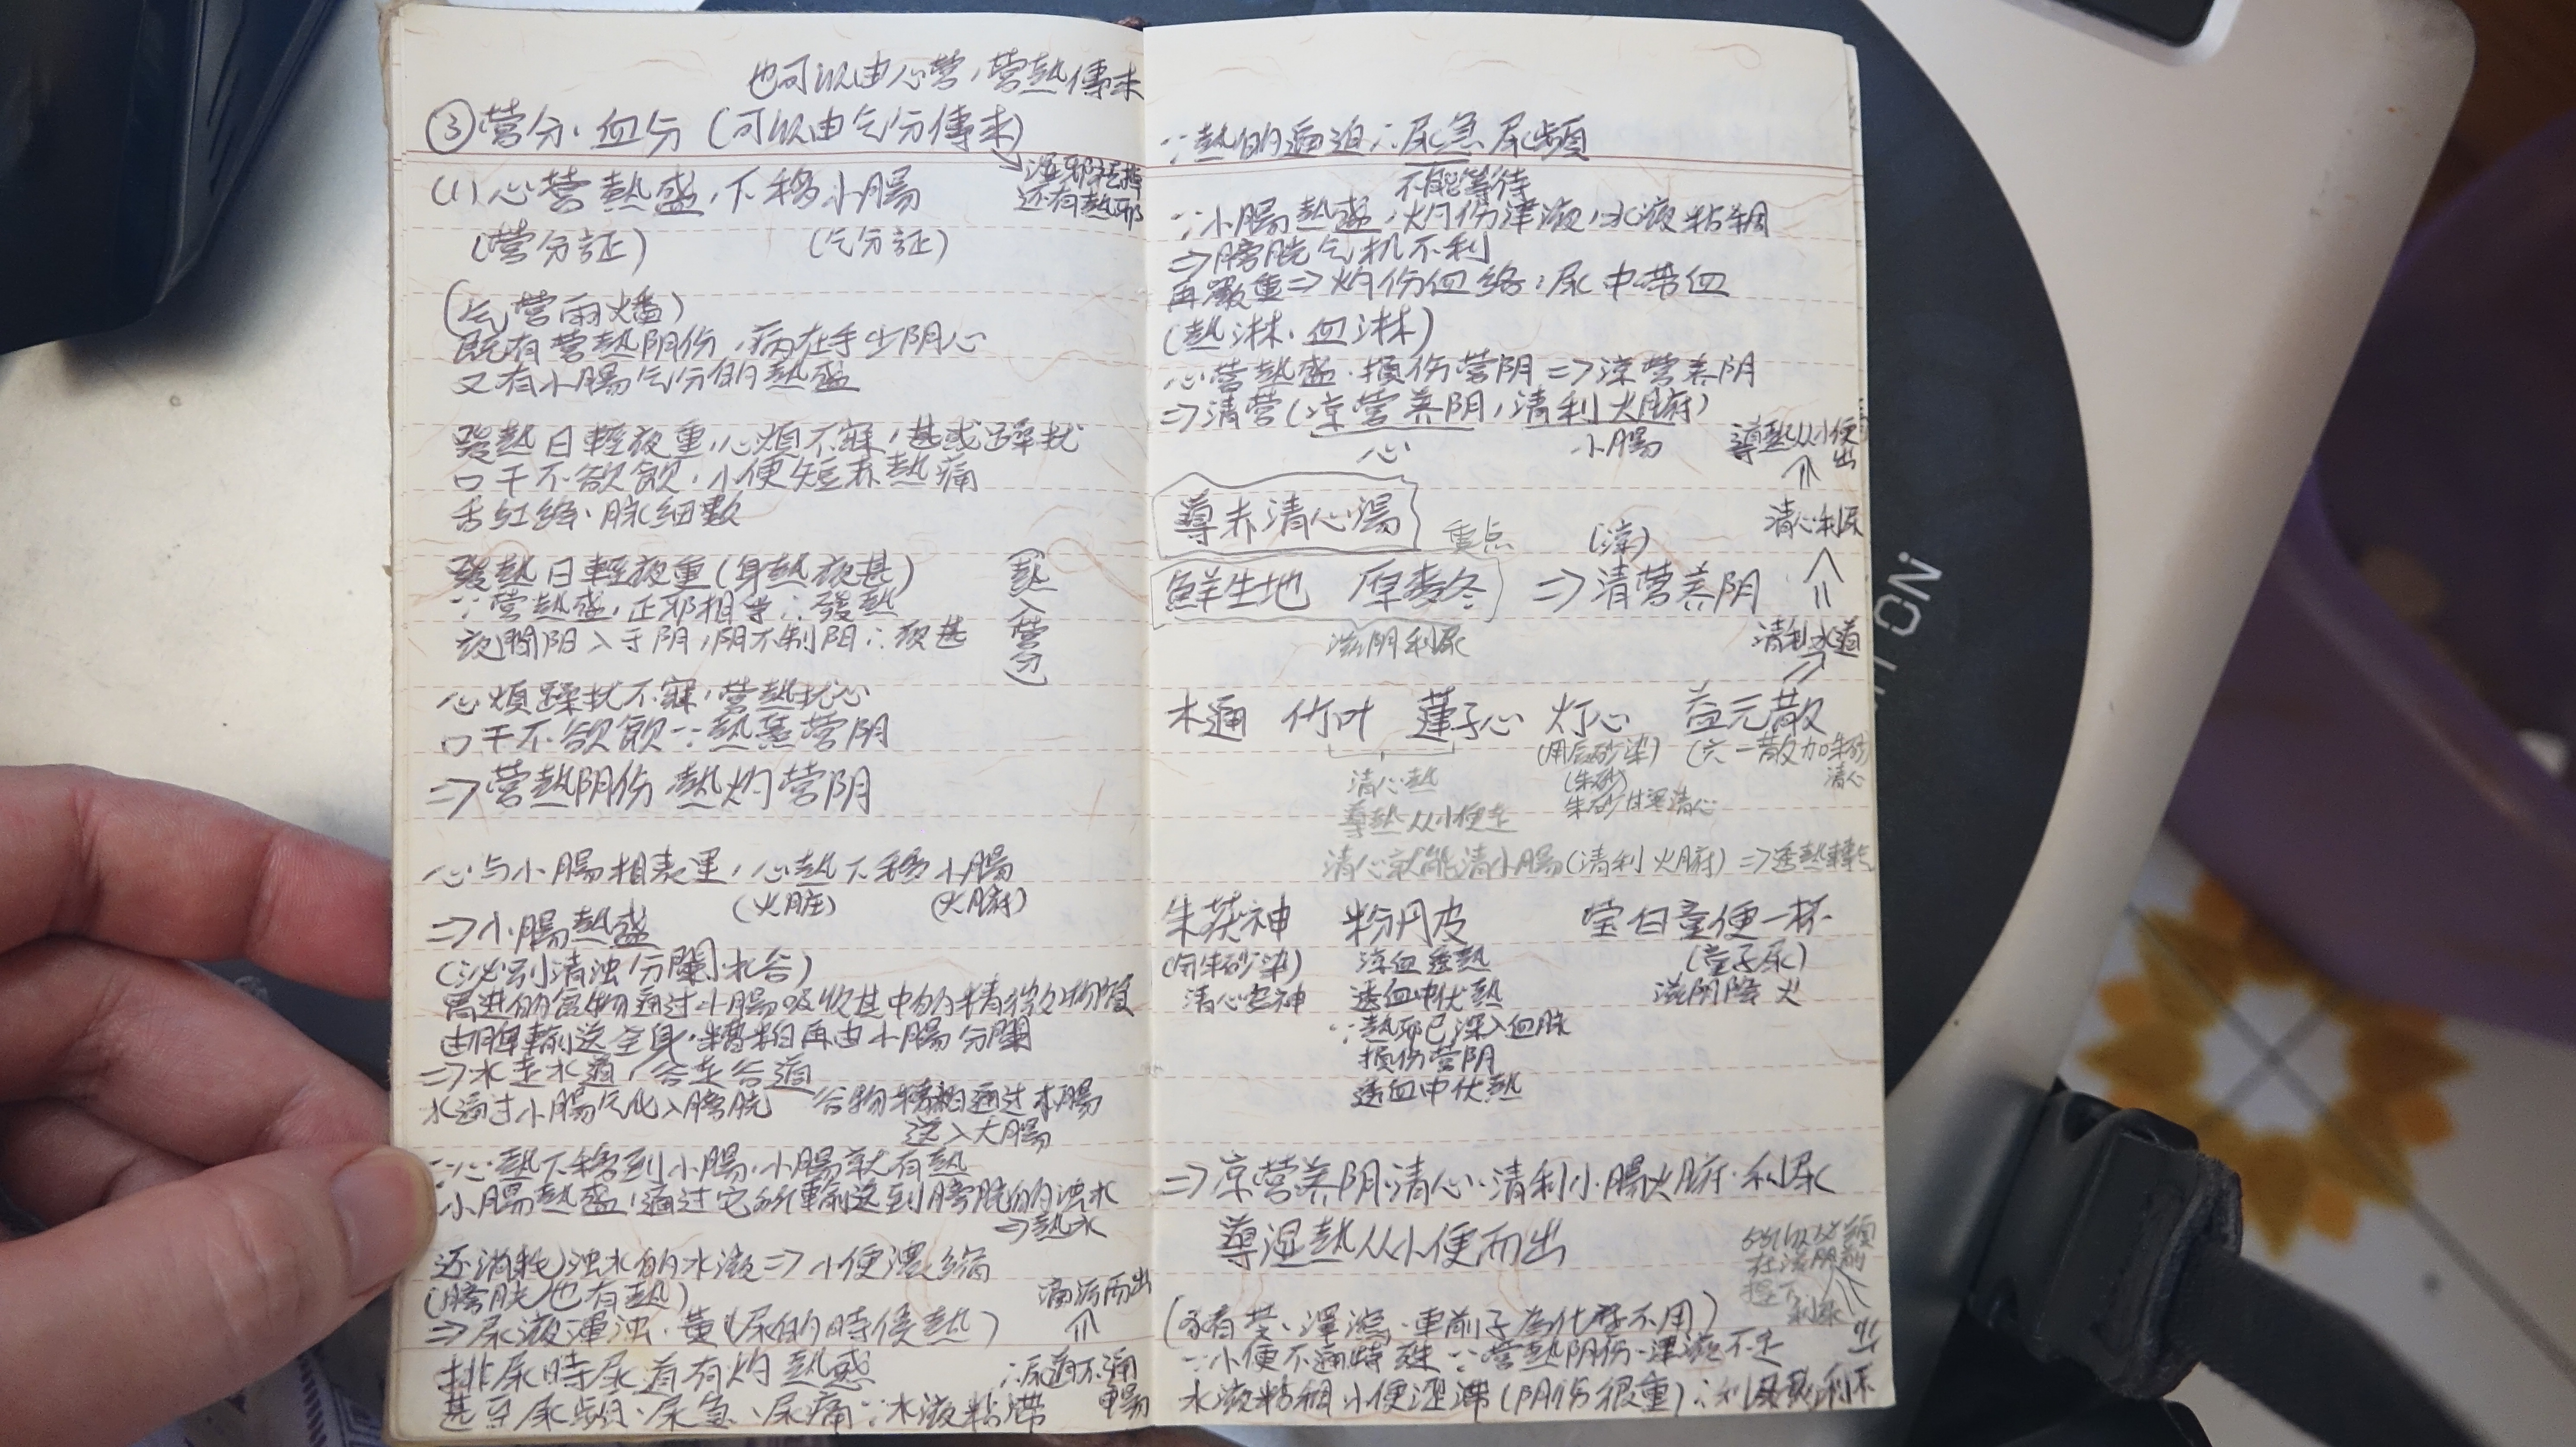 也可以由心营,营熱傳来
③营分、血分(可以由气分傳来)
湿邪祛掉
还有熱邪
(1)心营熱盛,下移小腸
(营分証) (气分証)
(气营両燔)
既有营熱阴伤,病在手少阴心
又有小腸气分的熱盛
發熱日輕夜重,心煩不寐,甚或躁扰
口干不欲飲,小便短赤熱痛
舌红絳、脉細數
發熱日輕夜重(身熱夜甚)
∵营熱盛,正邪相争∴發熱
夜間阳入于阴,阴不制阳∴夜甚
(熱入营分)
心煩躁扰不寐,营熱扰心
口干不欲飲∵熱蒸营阴
⇒营熱阴伤 熱灼营阴
心与小腸相表里,心熱下移小腸
(火脏) (火腑)
⇒小腸熱盛
(泌别清浊,分闌水谷)
胃进的食物通过小腸吸收其中的精微物質
由脾輸送全身,糟粕再由小腸分闌
⇒水走水道,谷走谷道
水通过小腸气化入膀胱 谷物糟粕通过小腸
送入大腸
∵心熱下移到小腸,小腸就有熱
小腸熱盛,通过它所輸送到膀胱的浊水
⇒熱水
还消耗浊水的水液⇒小便濃縮
(膀胱也有熱)
滴沥而出
⇒尿液渾浊、黄(尿的時候熱)
排尿時尿道有灼熱感 ∴尿道不通暢
甚至尿频、尿急、尿痛∵水液粘滞
∵熱的逼迫∴尿急尿频
不能等待
∵小腸熱盛,灼伤津液,水液粘稠
⇒膀胱气机不利
再嚴重⇒灼伤血络∴尿中带血
(熱淋、血淋)
心营熱盛,損伤营阴⇒涼营养阴
⇒清营(涼营养阴,清利火腑)
心 小腸
導熱从小便出
導赤清心湯
重点 (涼)
清心利尿
鮮生地 原麥冬 ⇒清营养阴
滋阴利尿
清利水道
木通 竹叶 蓮子心 灯心 益元散
(用辰砂染) (六一散加朱砂)
清心
(朱砂)
清心熱
朱砂甘寒清心
導熱从小便走
清心就能清小腸(清利火腑)⇒透熱轉气
朱茯神 粉丹皮 莹白童便一杯
(用朱砂染) 涼血透熱 (童子尿)
清心安神 透血中伏熱 滋阴降火
∵熱邪已深入血脉
損伤营阴
透血中伏熱
⇒涼营养阴,清心、清利小腸火腑、利尿
導湿熱从小便而出
所以必須
在滋阴前
提下
利尿
(豬苓、澤瀉、車前子为什麼不用)
∵小便不通特殊∵营熱阴伤、津液不足
水液粘稠小便涩滞(阴伤很重)∴利尿就利不出